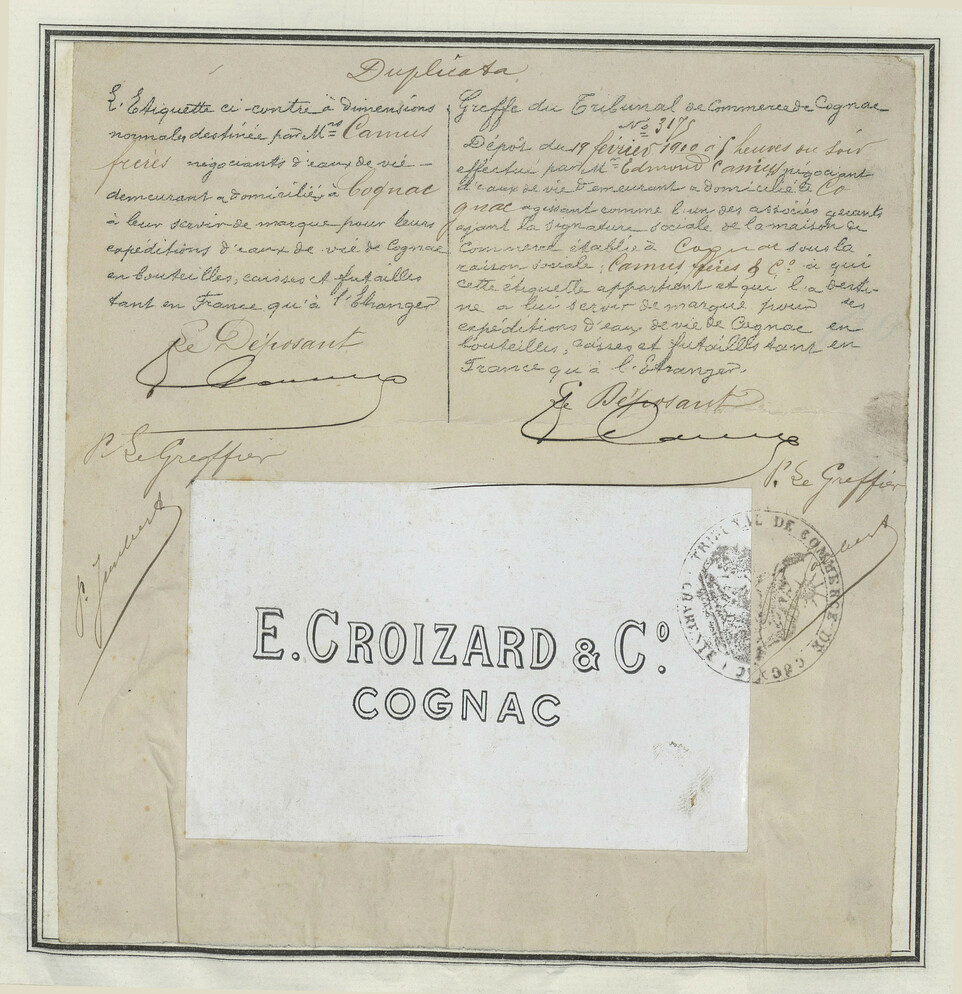 Duplicata
L'Etiquette ci-contre à dimensions
normales destinée par M.rs Camus
frères négociants d'eaux de vie -
demeurant & domiciliés à Cognac
à leur servir de marque pour leurs
expéditions d'eaux de vie de Cognac
en bouteilles, caisses et futailles
tant en France qu'à l'Etranger
Le Déposant
Camus
P. Le Greffier
Greffe du Tribunal de Commerce de Cognac
No 3175
Dépôt du 19 février 1910 à 5 heures du soir
effectué par M.r Edmond Camus négociant
d'eaux de vie demeurant & domicilié à Co
gnac agissant comme l'un des associés gérants
ayant la signature sociale de la maison de
Commerce établie à Cognac sous la
raison sociale: Camus frères & C.o à qui
cette étiquette appartient et qui l'a desti-
né à lui servir de marque pour ses
expéditions d'eaux de vie de Cognac en
bouteilles, caisses et futailles tant en
France qu'à l'Etranger.
Le Déposant
Camus
P. Le Greffier
E. CROIZARD & Co.
COGNAC
TRIBUNAL DE COMMERCE DE COGNAC (CHARENTE)